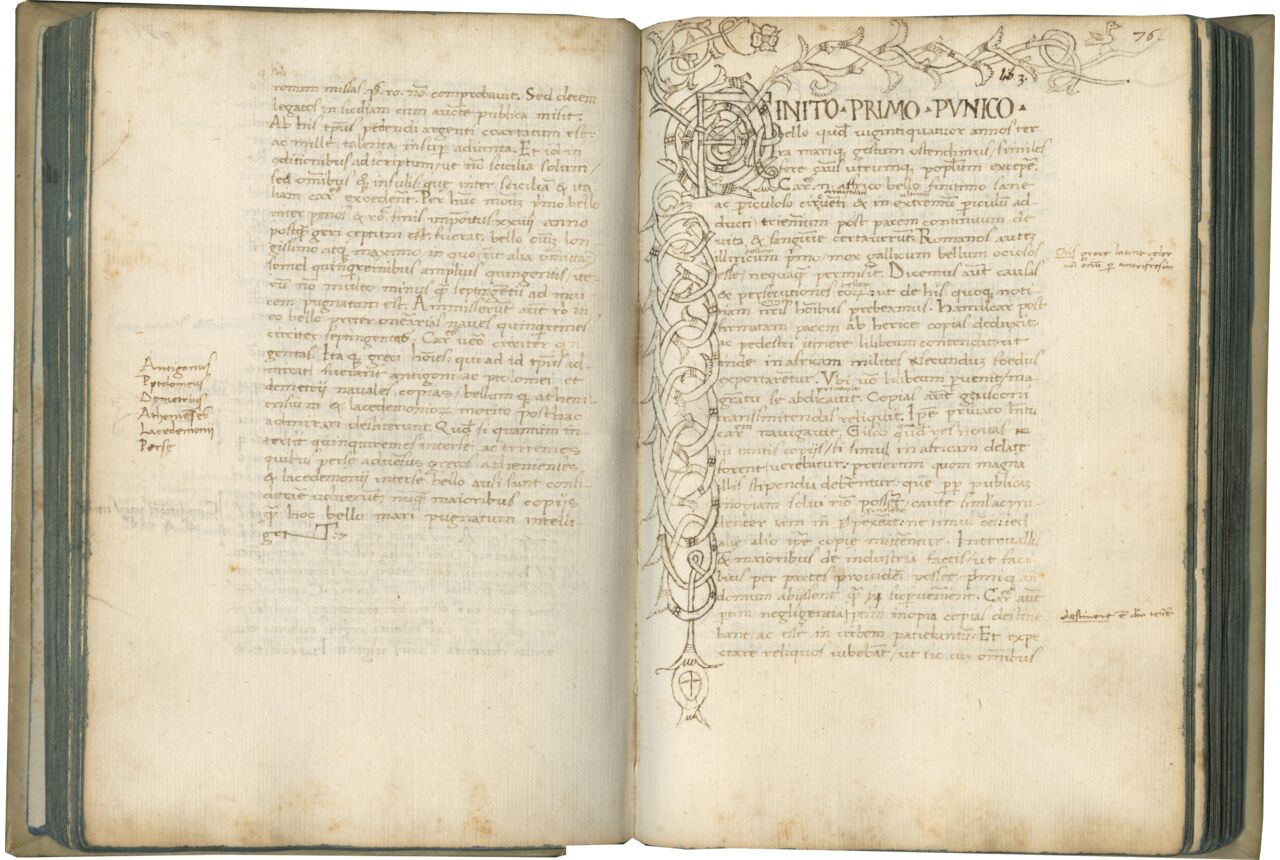 romani missas p. ro. nō comprobavit. Sed decem
legatos in siciliam cum aucte publica misit.
Ab his tpus pedendi argenti coartatum est:
ac mille talenta insup adiuncta. Et id in
ꝯditionibus adscriptum / ut nō scicilia solum /
sed omībus q insulis: que inter sciciliā & ita
liam car excederēt. Per hūc moꝝ pmo bello
inter penos & ro. finis impositus xxiiij anno
postq geri ceptum est. fuerat. bello oīuꝫ lon
gissimo atq maximo. in quo / ut alia omittaꝫ
semel quinqremibus amplius quingentis / ite
ru nō multo minus q septingētis ad invi
cem pugnatum est. Ammisserūt aūt ro in
eo bello preter onerarias naves quinqremes
circiter septingentas. Car vero circiter qn
gentas. Ita q greci hoīes: qui ad id tpus ad
mirati fuerāt antigoni / ac ptolomei et
demetrij navales copias / bellumq athēni
ensium & lacedemonioꝝ merito posthac
admirari desiterunt. Quod si quantum in
tersit quinquiremes interse ac triremes
quibus perse adversus grecos / athenienses
& lacedemonij interse bello ausi sunt conti
dere voluerūt / nūq maioribus copijs
q hoc bello mari pugnatum intelli
get
Antigonus
Ptolomeus
Demetrius
Athenieses
Lacedemonij
Perse
76.
lib 3.
FINITO · PRIMO · PVNICO ·
bello quod vigintiquatuor annos ter
ra mariq gestum ostendimus / similes
fere casus utrunq poplum excepe.
Car n. affrico bello finitimo sane
ac piculoso circūventi & in extremū piculū ad
ducti trieñium post pacem continuum de
vita & sanguine certaverūt. Romanos aūt
illiricum pmo / mox gallicum bellum ociosos
esse / nequaq permisit. Dicemus aūt causas
& persecutiones eoꝝ: ut de his quoq noti
tiam nris hoībus prebeamus. Hamilcar post
firmatam pacem ab herice copias deduxit.
ac pedestri itinere lilibeum contendit: ut
inde in africam milites secundum foedus
exportarētur. Vbi vo lilibeum pvenit / ma
gratu se abdicavit. Copias aūt gisconi
transmittendas reliquit. Ipe privato hitu
car navigavit. Gisco quid res novas
in tantis copijs / si simul in africam delate
forent / verebatur: presertim quom magna
illis stipendia deberentur. que pp publicaꝫ
inopiam solvi nō possēt / caute simul ac pru
denter rem inspexerat: ne simul oēs: sed
alie alio tpe copie mitterentur. Intervallis
& maioribus de industria factis / ut faci
lius per partes provideri posset / pmiq an
domum abissent q 14 supvenirent. Car aūt
ptim negligentia / ptim inopia copias destine
bant ac esse in urbem patiebantur. Et expe
ctare reliquos iubebāt / ut sic cum omībus